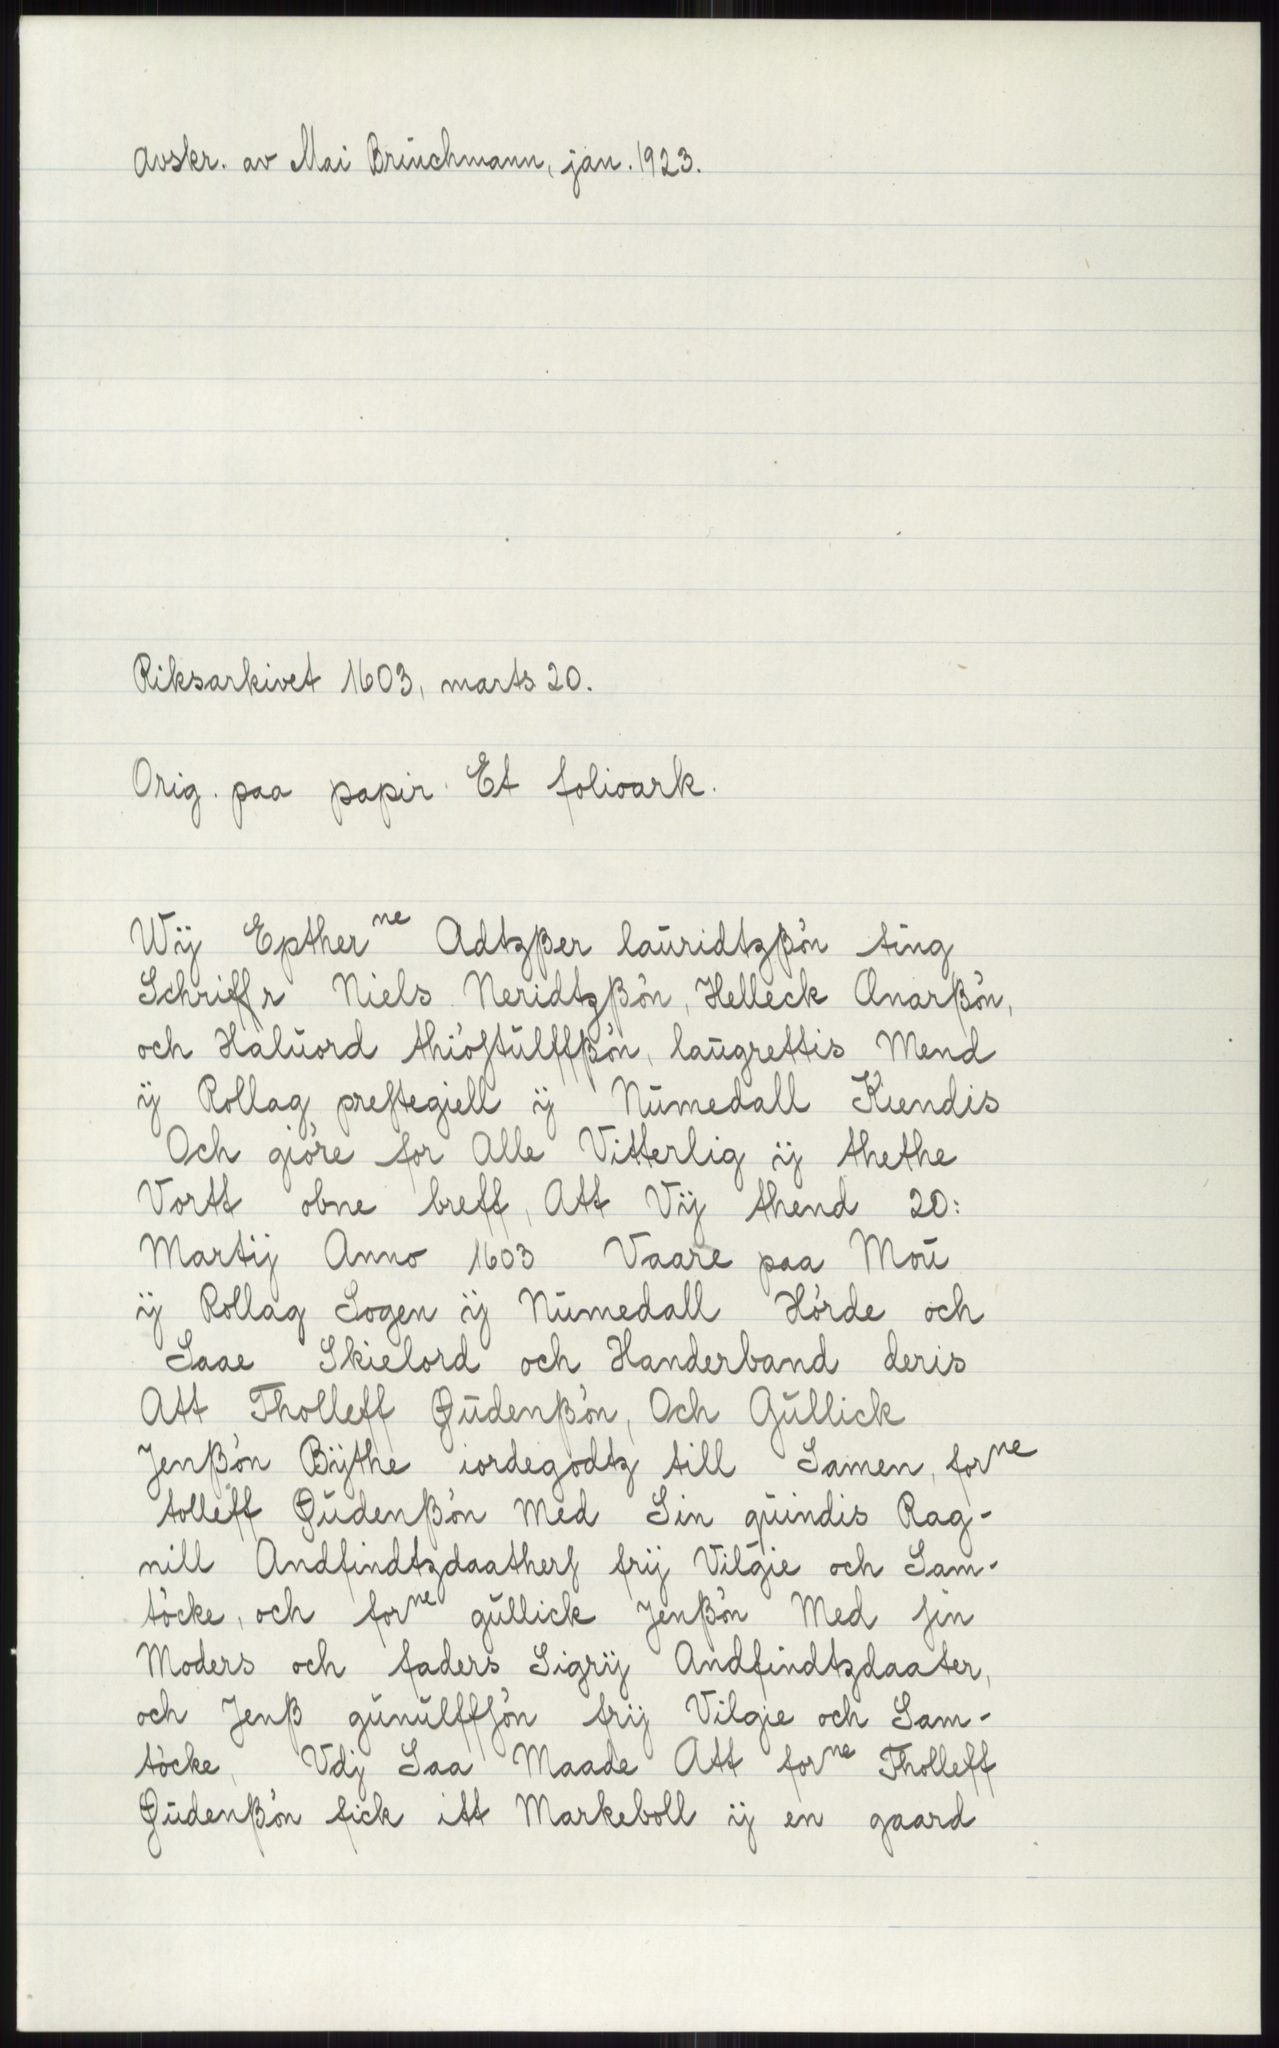 Avskr. av Mai Bruchmann, jan. 1923.
Riksarkivet 1603, marts 20.
Orig. paa papir. Et folioark.
Wÿ Epther ne Adtzßer lauridtzßøn ting
Schriffr Niels Neridtzßøn, Helleck Anarßøn,
och Haluord thiøstulffßøn, laugrettis Mend
ÿ Rollag prestegiell ÿ Numedall Kiendis
Och giøre for Alle Vitterlig ÿ thethe
Vortt obne breff, Att Vÿ thend 20:
Martij Anno 1603 Vaare paa Mou
ÿ Rollag Sogen ÿ Numedall Hørde och
Saae Skielord och Handerband deris
Att Tholleff Øudenßøn, Och Gullick
Jenßøn Bÿthe iordegodtz till Samen, for ne
tolleff Øudenßøn Med Sin quindis Rag-
nill Andfindtzdaathers frij Vilgie och Sam-
tøcke, och for ne gullick Jenßøn Med sin
Moders och faders Sigrij Andfindtzdaater,
och Jenß gunulffsøn frij Vilgie och Sam-
tøcke, Vdj Saa Maade Att for ne Tholleff
Øudenßøn fick itt Markeboll ÿ en gaard